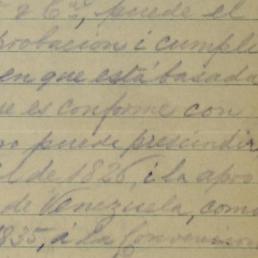 y Cª, puede el
probacion i cumple
en que está basada
ue es conforme con
no puede prescindir
l de 1826, i la apro
de Venezuela, como
1835, á la Convencion